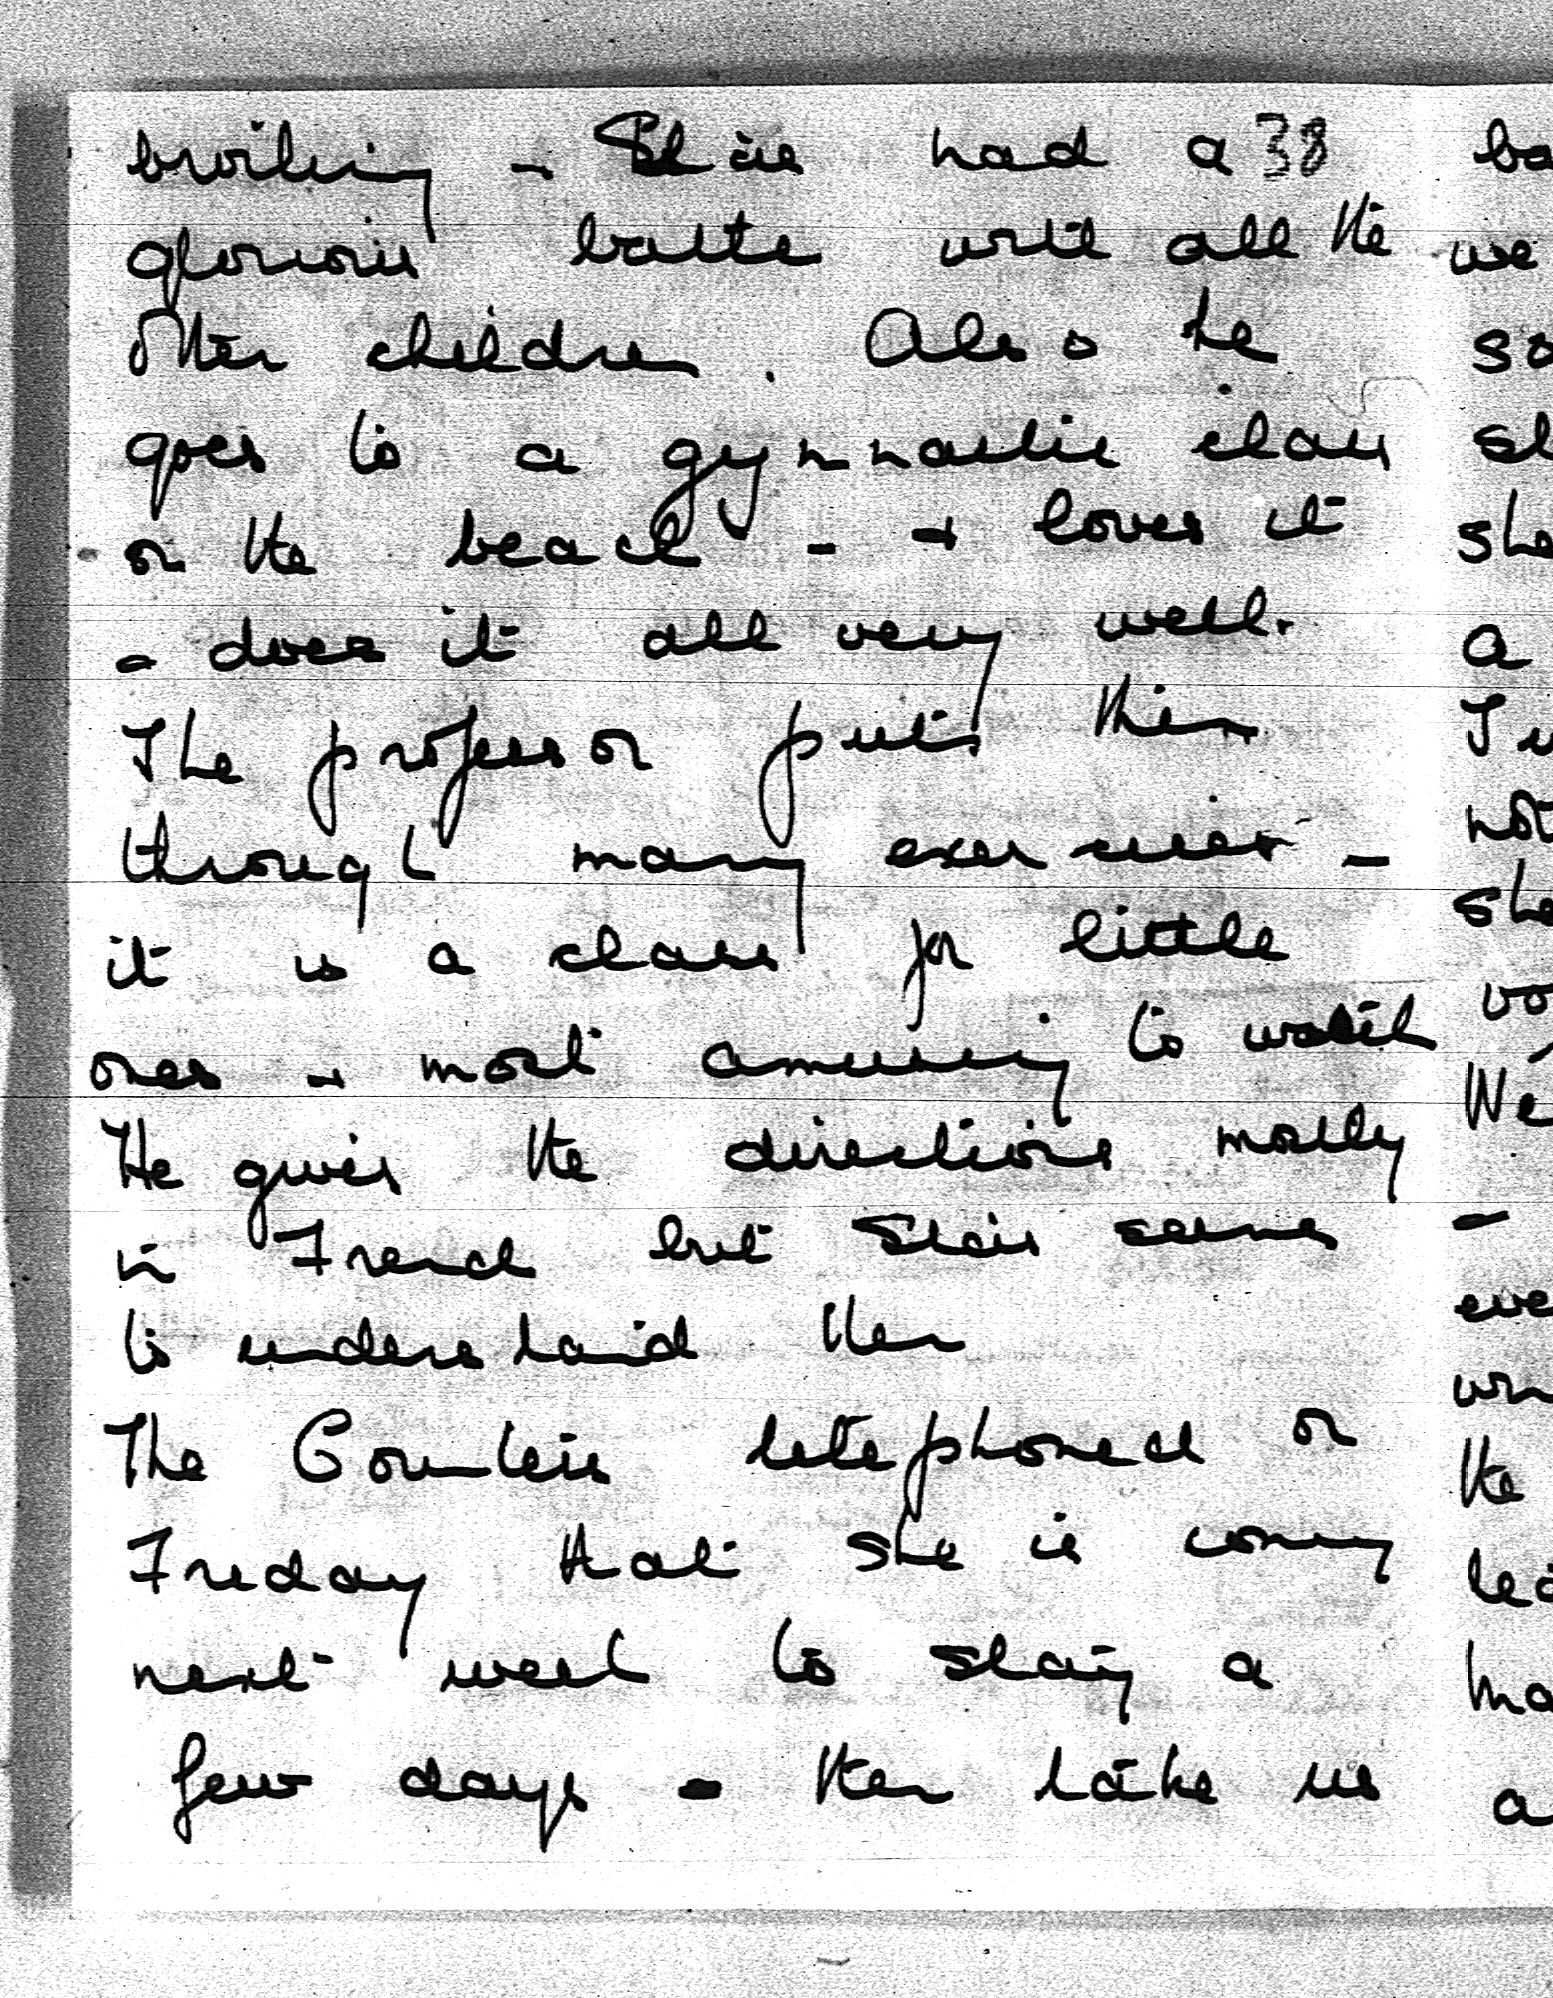 broiling - Stair had a 38
glorious bathe with all the
other children. Also he
goes to a gymnastic class
on the beach - + loves it
- does it all very well.
The professor puts them
through many exercises -
it is a class for little
ones + most amusing to watch
He gives the directions mostly
in French but Stair seems
to understand them
The Comtesse telephoned on
Friday that she is coming
next week to stay a
few days - then take us
we
she
a
not
she
We
-
the
a